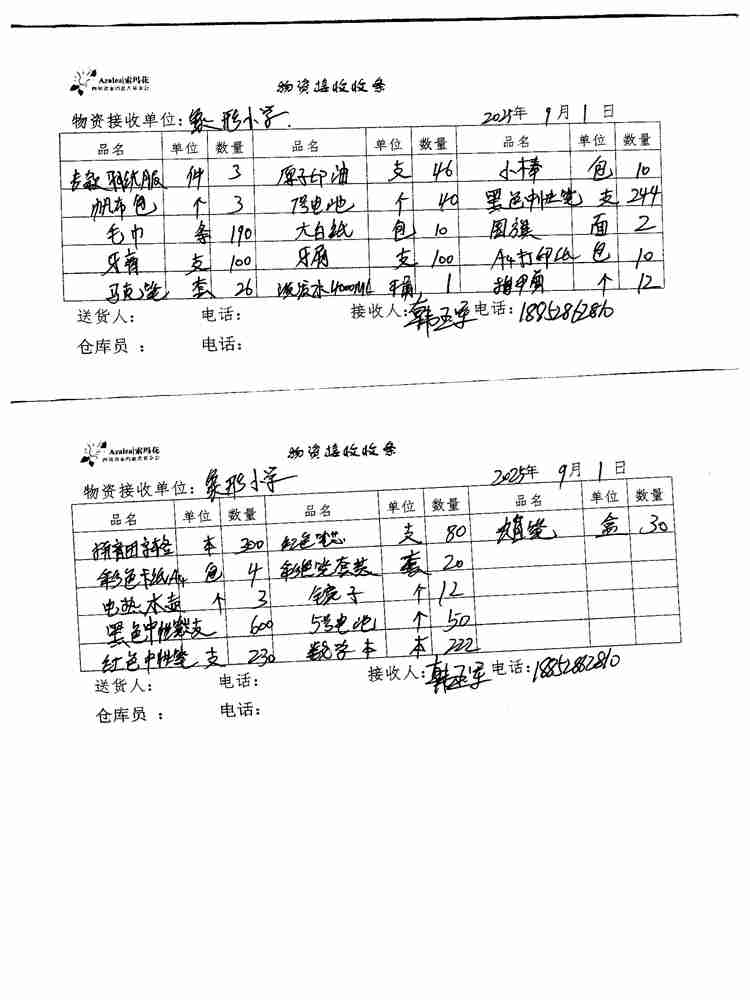 Azalea|索玛花
物资接收收条
物资接收单位:象形小学.
2025年 9月1日
品名 单位 数量 品名 单位 数量 品名 单位 数量
件 3 原子印油 支 46 小棒 包 10
帆布包 个 3 7号电池 个 40 黑色中性笔 支 244
毛巾 条 190 大白纸 包 10 国旗 面 2
牙膏 支 100 牙刷 支 100 A4打印纸 包 10
马克笔 套 26 1 指甲剪 个 12
送货人: 电话: 接收人: 电话:
仓库员 : 电话:
Azalea|索玛花
物资接收收条
物资接收单位:象形小学
2025年 9月1日
品名 单位 数量 品名 单位 数量 品名 单位 数量
本 300 红色笔芯 支 80 盒 30
彩色卡纸A4 包 4 彩色笔套装 套 20
电热水壶 个 3 个 12
黑色中性笔 支 600 5号电池 个 50
红色中性笔 支 230 数学本 本 222
送货人: 电话: 接收人: 电话:18852862810
仓库员 : 电话: